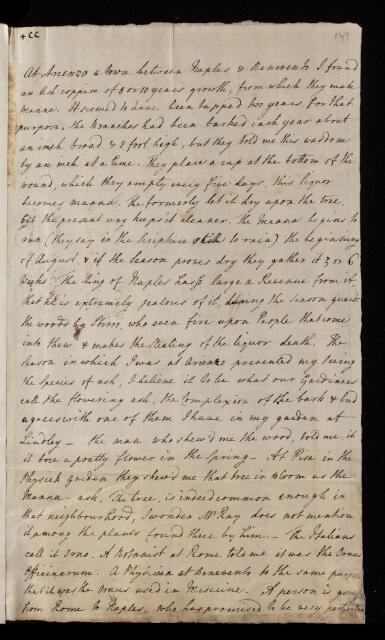 +CC
141
At Arienzo a town between Naples & Benevento I found
an Ash coppice of 8 or 10 years growth, from which they make
manna. It seemed to have been tapped two years for that
purpose, the branches had been barked each year about
an inch broad & 2 foot high, but they told me this was done
by an inch at a time. They place a cup at the bottom of the
wound, which they empty every five days, this liquor
becomes manna. The formerly let it dry upon the tree,
but the present way keeps it cleaner. The Manna begins to
run (they say in the Scripture stile to rain) the beginning
of August, & if the season proves dry they gather it 5 or 6
weeks. The King of Naples has so large a Revenue from it,
that he is extremely jealous of it, during the season guards
the woods by Sbirri, who even fire upon People that come
into them & makes the Stealing of the liquor death. The
Season in which I was at Arienzo prevented my seeing
the species of ash, I believe it to be what our Gardiners
call the flowering ash, the complexion of the bark & bud
agrees with one of them I have in my garden at
Lindley — the man who shew'd me the wood, told me, it
it bore a pretty flower in the Spring — At Pisa in the
Physick Garden they shew'd me that tree in bloom as the
Manna ash. The tree, is indeed common enough in
that neighbourhood, I wonder Mr. Ray does not mention
it among the plants found there by him. — the Italians
call it Orno. A Botanist at Rome told me it was the Ornus
Officinarum. A Physician at Benevento to the same purpose
that it was the Ornus used in Medicine. A person is going
from Rome to Naples, who has promised to be very particular